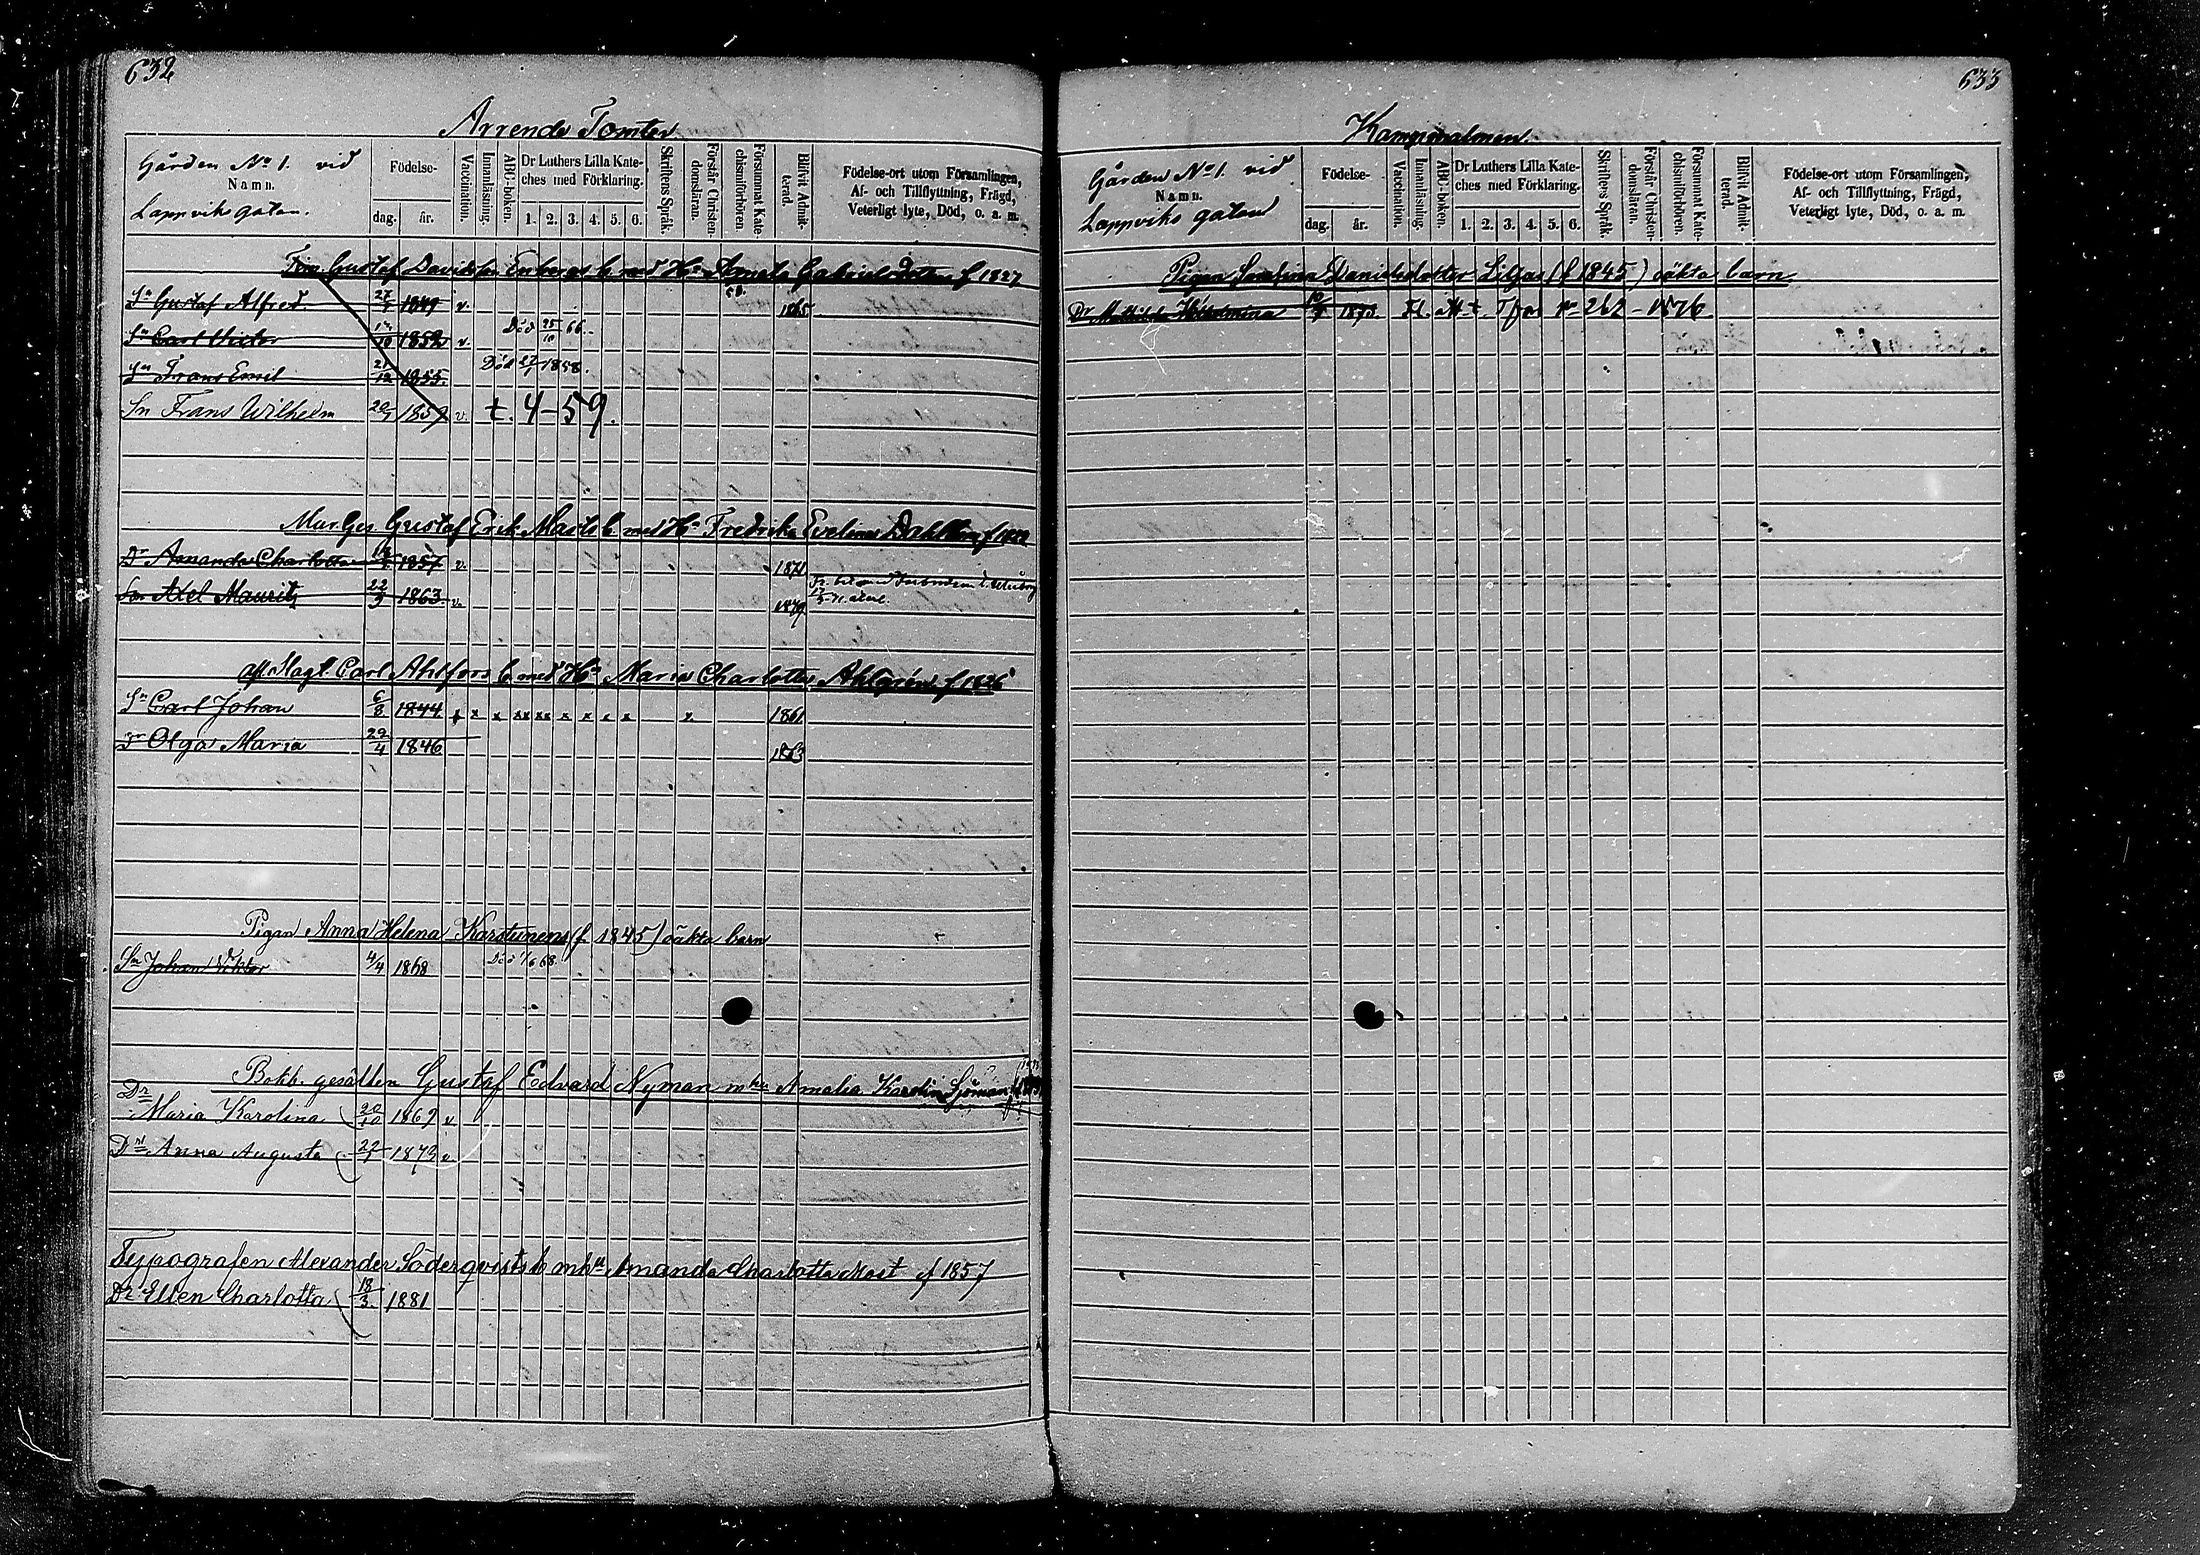 632
Arrende Tomter
Gården No 1. vid
Namn.
Lappviks gatan.
Födelse-
dag. år.
Vaccination.
Innanläsning.
ABC-boken.
Dr Luthers Lilla Kate-
ches med Förklaring.
1. 2. 3. 4. 5. 6.
Skriftens Språk.
Förstår Christen-
domsläran.
Försummat Kate-
chismiförhören.
Blifvit Admit-
terad.
Födelse-ort utom Församlingen,
Af- och Tillflyttning, Frägd,
Veterligt lyte, Död, o. a. m.
Gustaf Davidsson Enbergs b med Hu Amalia f 1827
Sn Gustaf Alfred. 27/7 1849 v. 1865
Sn Carl Victor /10 1852 v. Död 25/10 66.
Sn Frans Emil 21/12 1855. Död 27/7 1858.
Sn Frans Wilhelm 20/7 1857 v. t. 4-59.
Mur Ges Gustaf Erik b med Hu Fredrika Evelina Dahlbom
Dr Amanda Charlotta 1857 v. 1871
Sn Axel Mauritz 22/9 1863 v. 1879
Carl Ahlfors b med Hu Maria Charlotta Ahlgrén f 1826
Sn Carl Johan 6/8 1844 x x x xx xx x x x x x 1861
Dr Olga Maria 29/4 1846 1863
Pigan Anna Helena Karstunens (f. 1845) oäkta barn
Sn Johan Viktor 4/4 1868 Död 1/6 68.
Bokb. gesällen Gustaf Edvard Nyman m hu Amalia Karolin Sjöman
Dr
Maria Karolina 20/10 1869 v
Dr Anna Augusta 22/1 1873 v.
Typografen Alexander Söderqvists b m hu Amanda Charlotta Mast f 1857
Dr Ellen Charlotta 18/3 1881
633
Kampmalmen.
Gården No 1. vid
Namn.
Lappviks gatan
Födelse-
dag. år.
Vaccination.
Innanläsning.
ABC-boken.
Dr Luthers Lilla Kate-
ches med Förklaring.
1. 2. 3. 4. 5. 6.
Skriftens Språk.
Förstår Christen-
domsläran.
Försummat Kate-
chismiförhören.
Blifvit Admit-
terad.
Födelse-ort utom Församlingen,
Af- och Tillflyttning, Frägd,
Veterligt lyte, Död, o. a. m.
Pigan Serafina Danielsdotter Liljas (f 1845) oäkta barn
Dr Mathilda Wilhelmina 1873. 262 - 1876